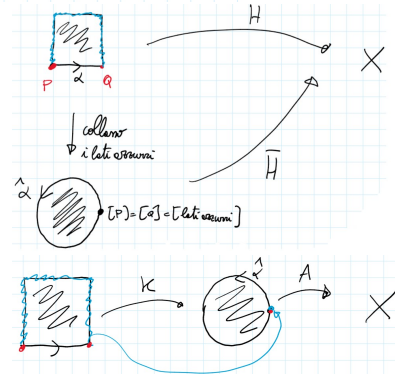 H
X
P α Q
collasso
i lati azzurri
H̅
α̂
[P]=[Q]=[lati azzurri]
α̂
K A
X